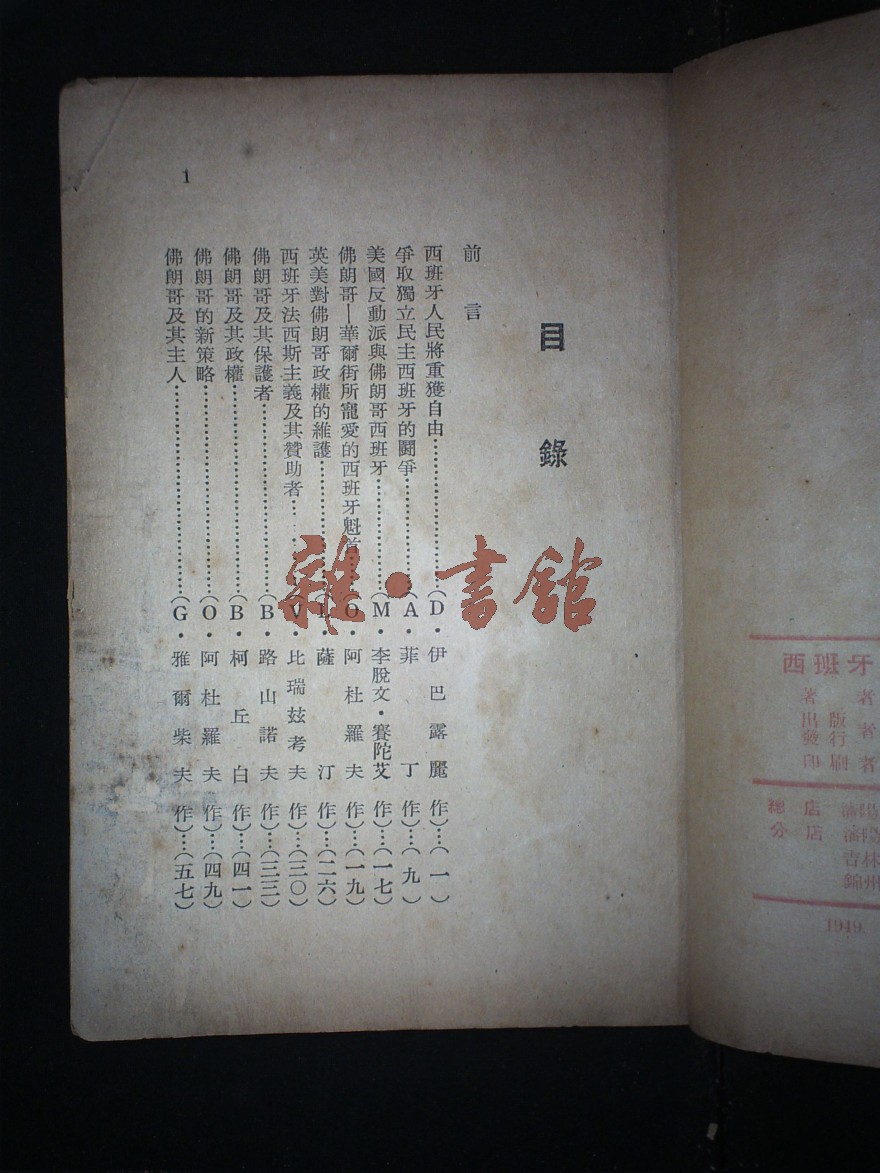 西班牙
著 者
出版
發行者
印刷者
總店 瀋陽
分店 瀋陽
吉林
錦州
1949.
目錄
前言
西班牙人民將重獲自由…………(D·伊巴露麗作)…(一)
爭取獨立民主西班牙的鬪爭…………(A·菲丁作)…(九)
美國反動派與佛朗哥西班牙…………(M·李脫文·賽陀艾作)…(一七)
佛朗哥—華爾街所寵愛的西班牙魁首…(O·阿杜羅夫作)…(一九)
英美對佛朗哥政權的維護…………(·薩汀作)…(二六)
西班牙法西斯主義及其贊助者…………(V·比瑞茲考夫作)…(三〇)
佛朗哥及其保護者…………(B·路山諾夫作)…(三三)
佛朗哥及其政權…………(B·柯丘白作)…(四一)
佛朗哥的新策略…………(O·阿杜羅夫作)…(四九)
佛朗哥及其主人…………(G·雅爾柴夫作)…(五七)
1
雜·書館